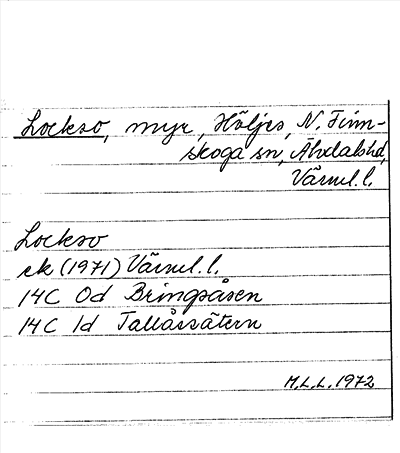 Lockso, myr, Höljes, N. Finn-
skoga sn, Älvdalshd,
Värml. l.
Lockso
ek (1971) Värml. l.
14C 0d Bringsåsen
14C 1d Tallåssätern
M.L.L. 1972